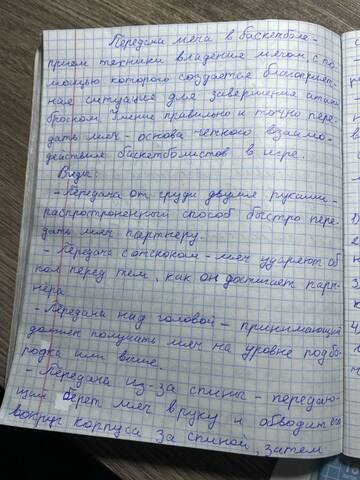 Передача мяча в баскетболе -
прием техники владения мячом, с по-
мощью которого создается благоприят-
ная ситуация для завершения атаки
броском. Умение правильно и точно пере-
дать мяч - основа четкого взаимо-
действия баскетболистов в игре.
Виды:
- Передача от груди двумя руками -
распространенный способ быстро пере-
дать мяч партнеру.
- Передача с отскоком - мяч ударяют об
пол перед тем, как он достигает парт-
нера
- Передача над головой - принимающий
должен получить мяч на уровне подбо-
родка или выше.
- Передача из-за спины - передаю-
щий берет мяч в руку и обводит его
вокруг корпуса за спиной, затем